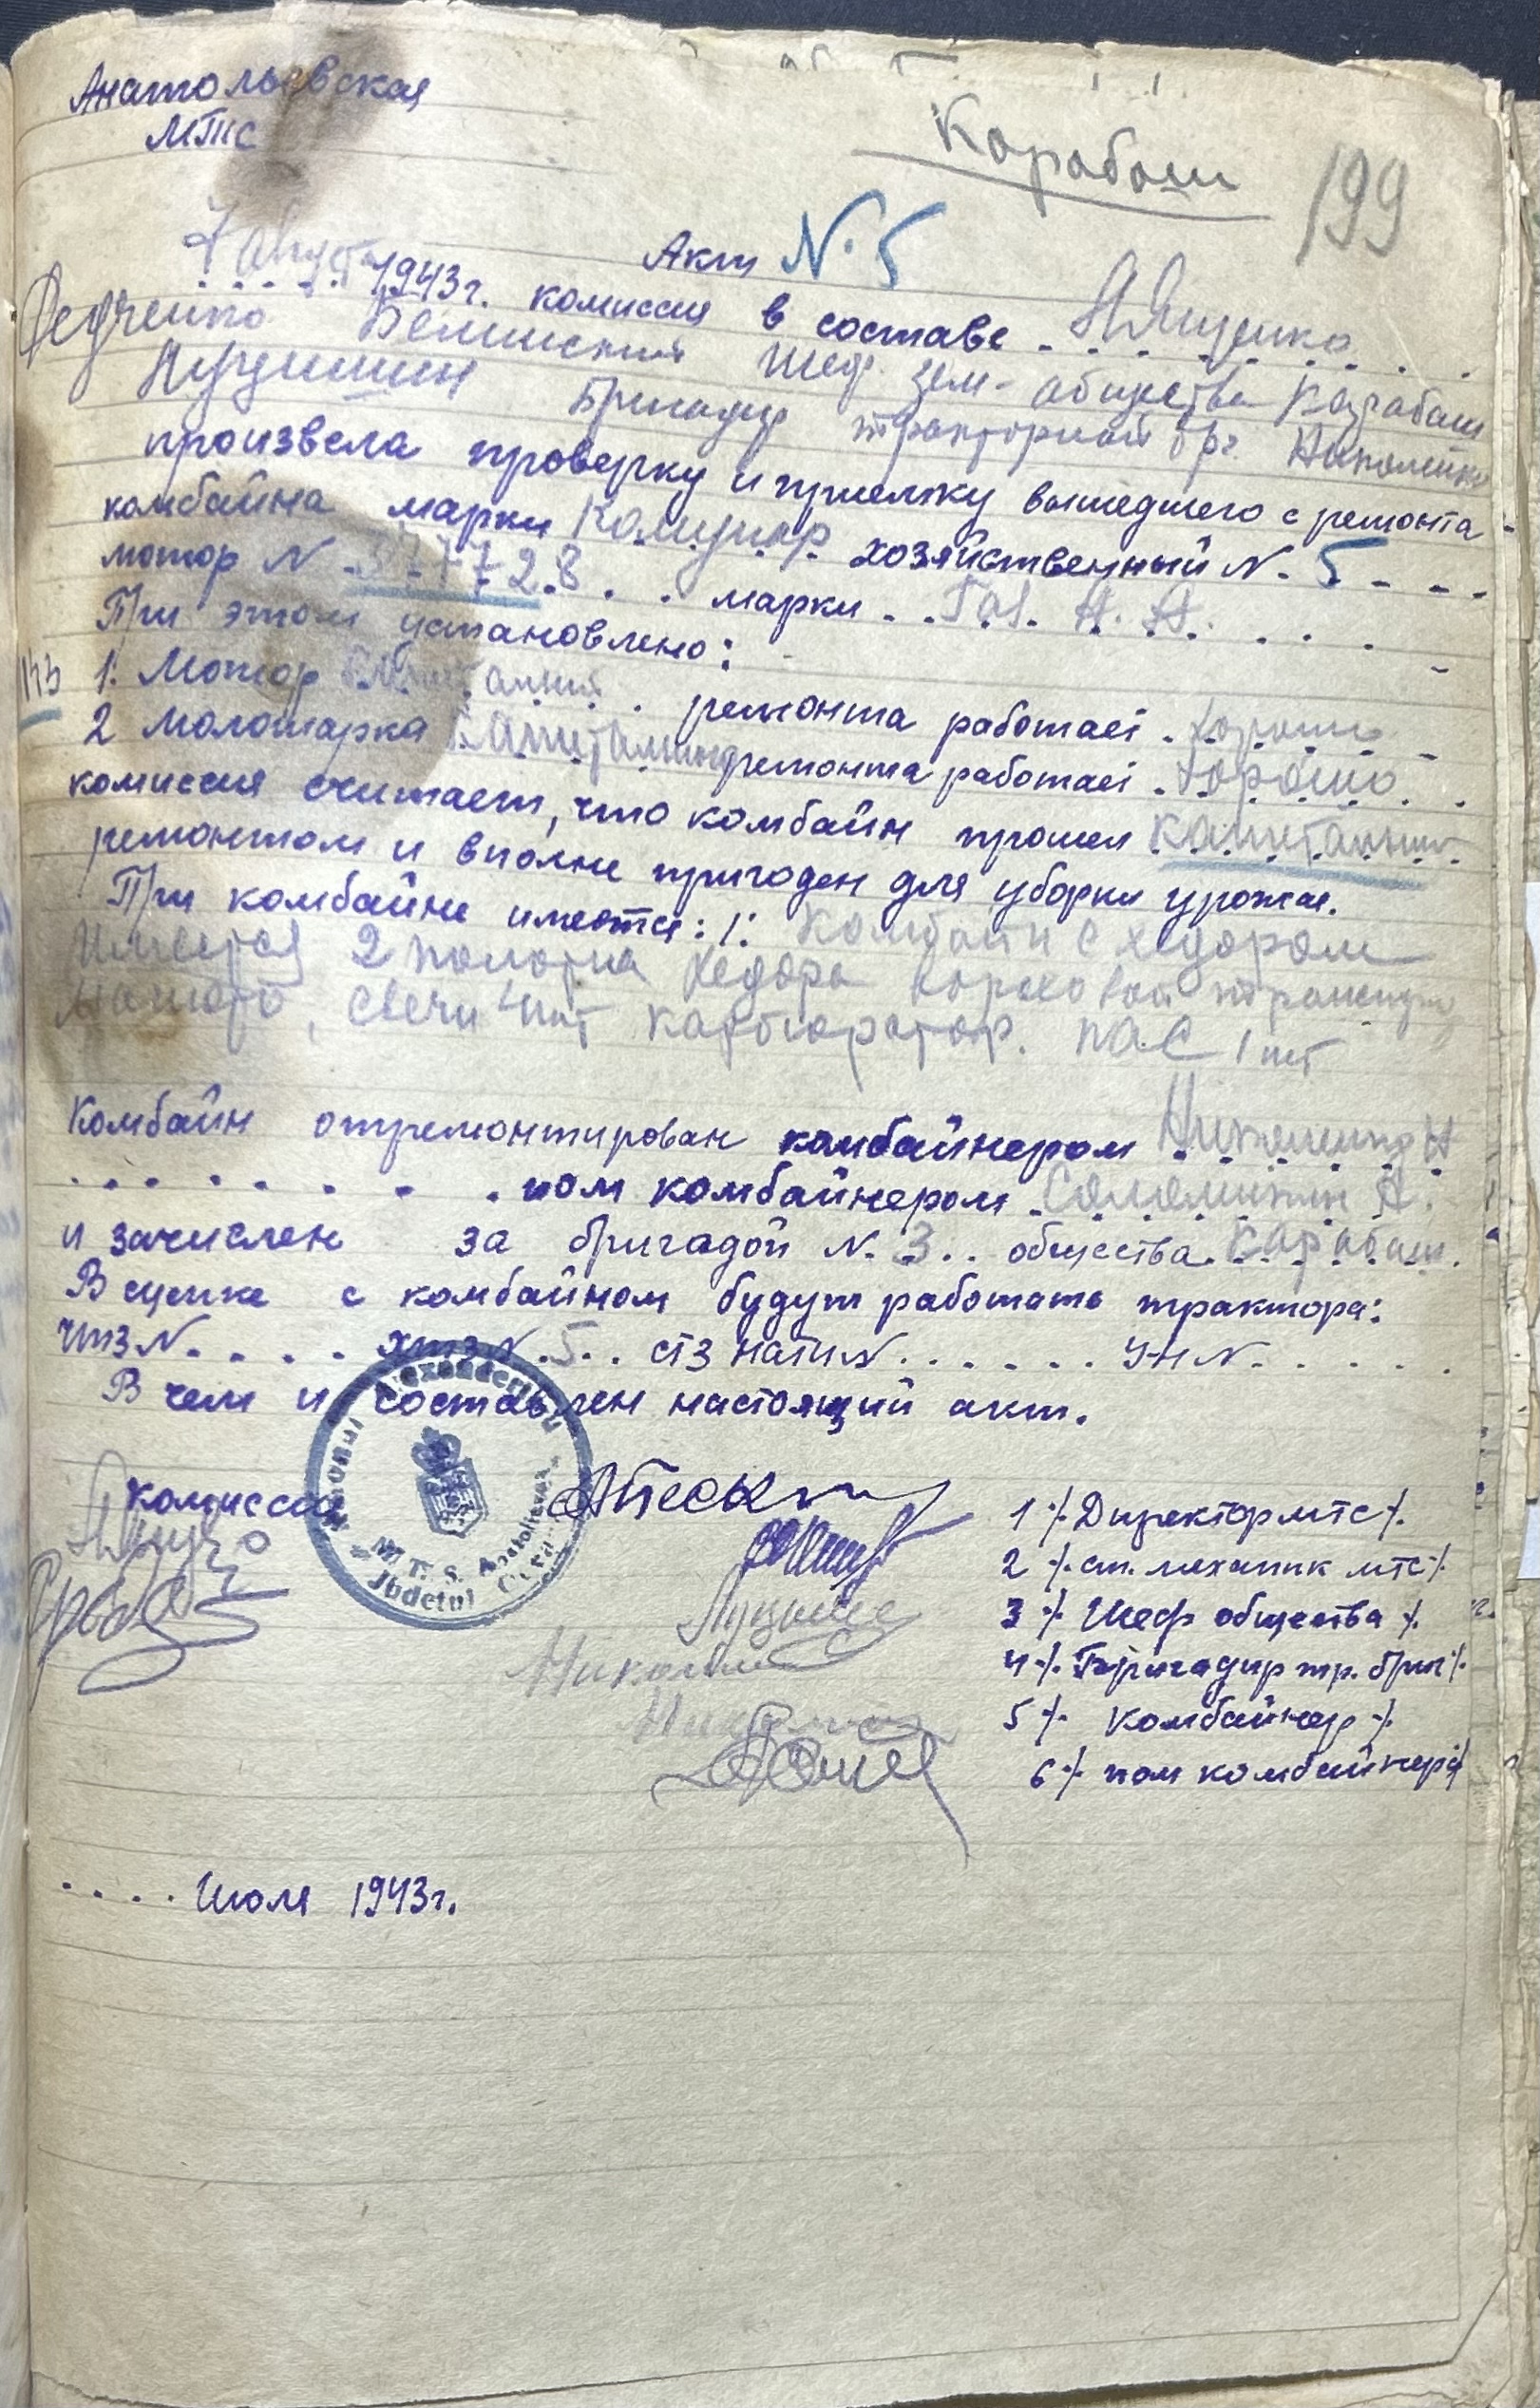 Анатольевская
МТС
Карабаш
199
Акт N. 5
7 Августа 1943 г. комиссия в составе Н Ященко
Федченко Белинский Шеф зем- общества Карабаш
Бригадир тракторной бр. Николенко
произвела проверку и приемку вышедшего с ремонта
комбайна марки Комунар хозяйственный N. 5
мотор N 377728 марки Газ. А. А.
При этом установлено:
1. Мотор ремонта работает хорошо
2 Молотарка капитально ремонта работает хорошо
комиссия считает, что комбайн прошел капитальн
ремонтом и вполне пригоден для уборки урожая.
При комбайне имеется: 1. Комбайн с хедором
Имеется 2 полотна хедора
магнето, свечи 4 шт карбюратор. пас 1 шт
Комбайн отремонтирован комбайнером Николенко Н
пом комбайнером А.
и зачислен за бригадой N. 3 общества Карабаш.
В сцепке с комбайном будут работать трактора:
ЧТЗ N. ХТЗ N. 5 СТЗ НАТИ N. УН N.
В чем и составлен настоящий акт.
комиссия
1 /. Директор МТС /.
2 /. ст. механик МТС /.
3 /. Шеф общества /.
4 /. Бригадир тр. бриг /.
5 /. Комбайнер /.
6 /. пом комбайнера /.
M. T. S.
Judetul
Июля 1943 г.